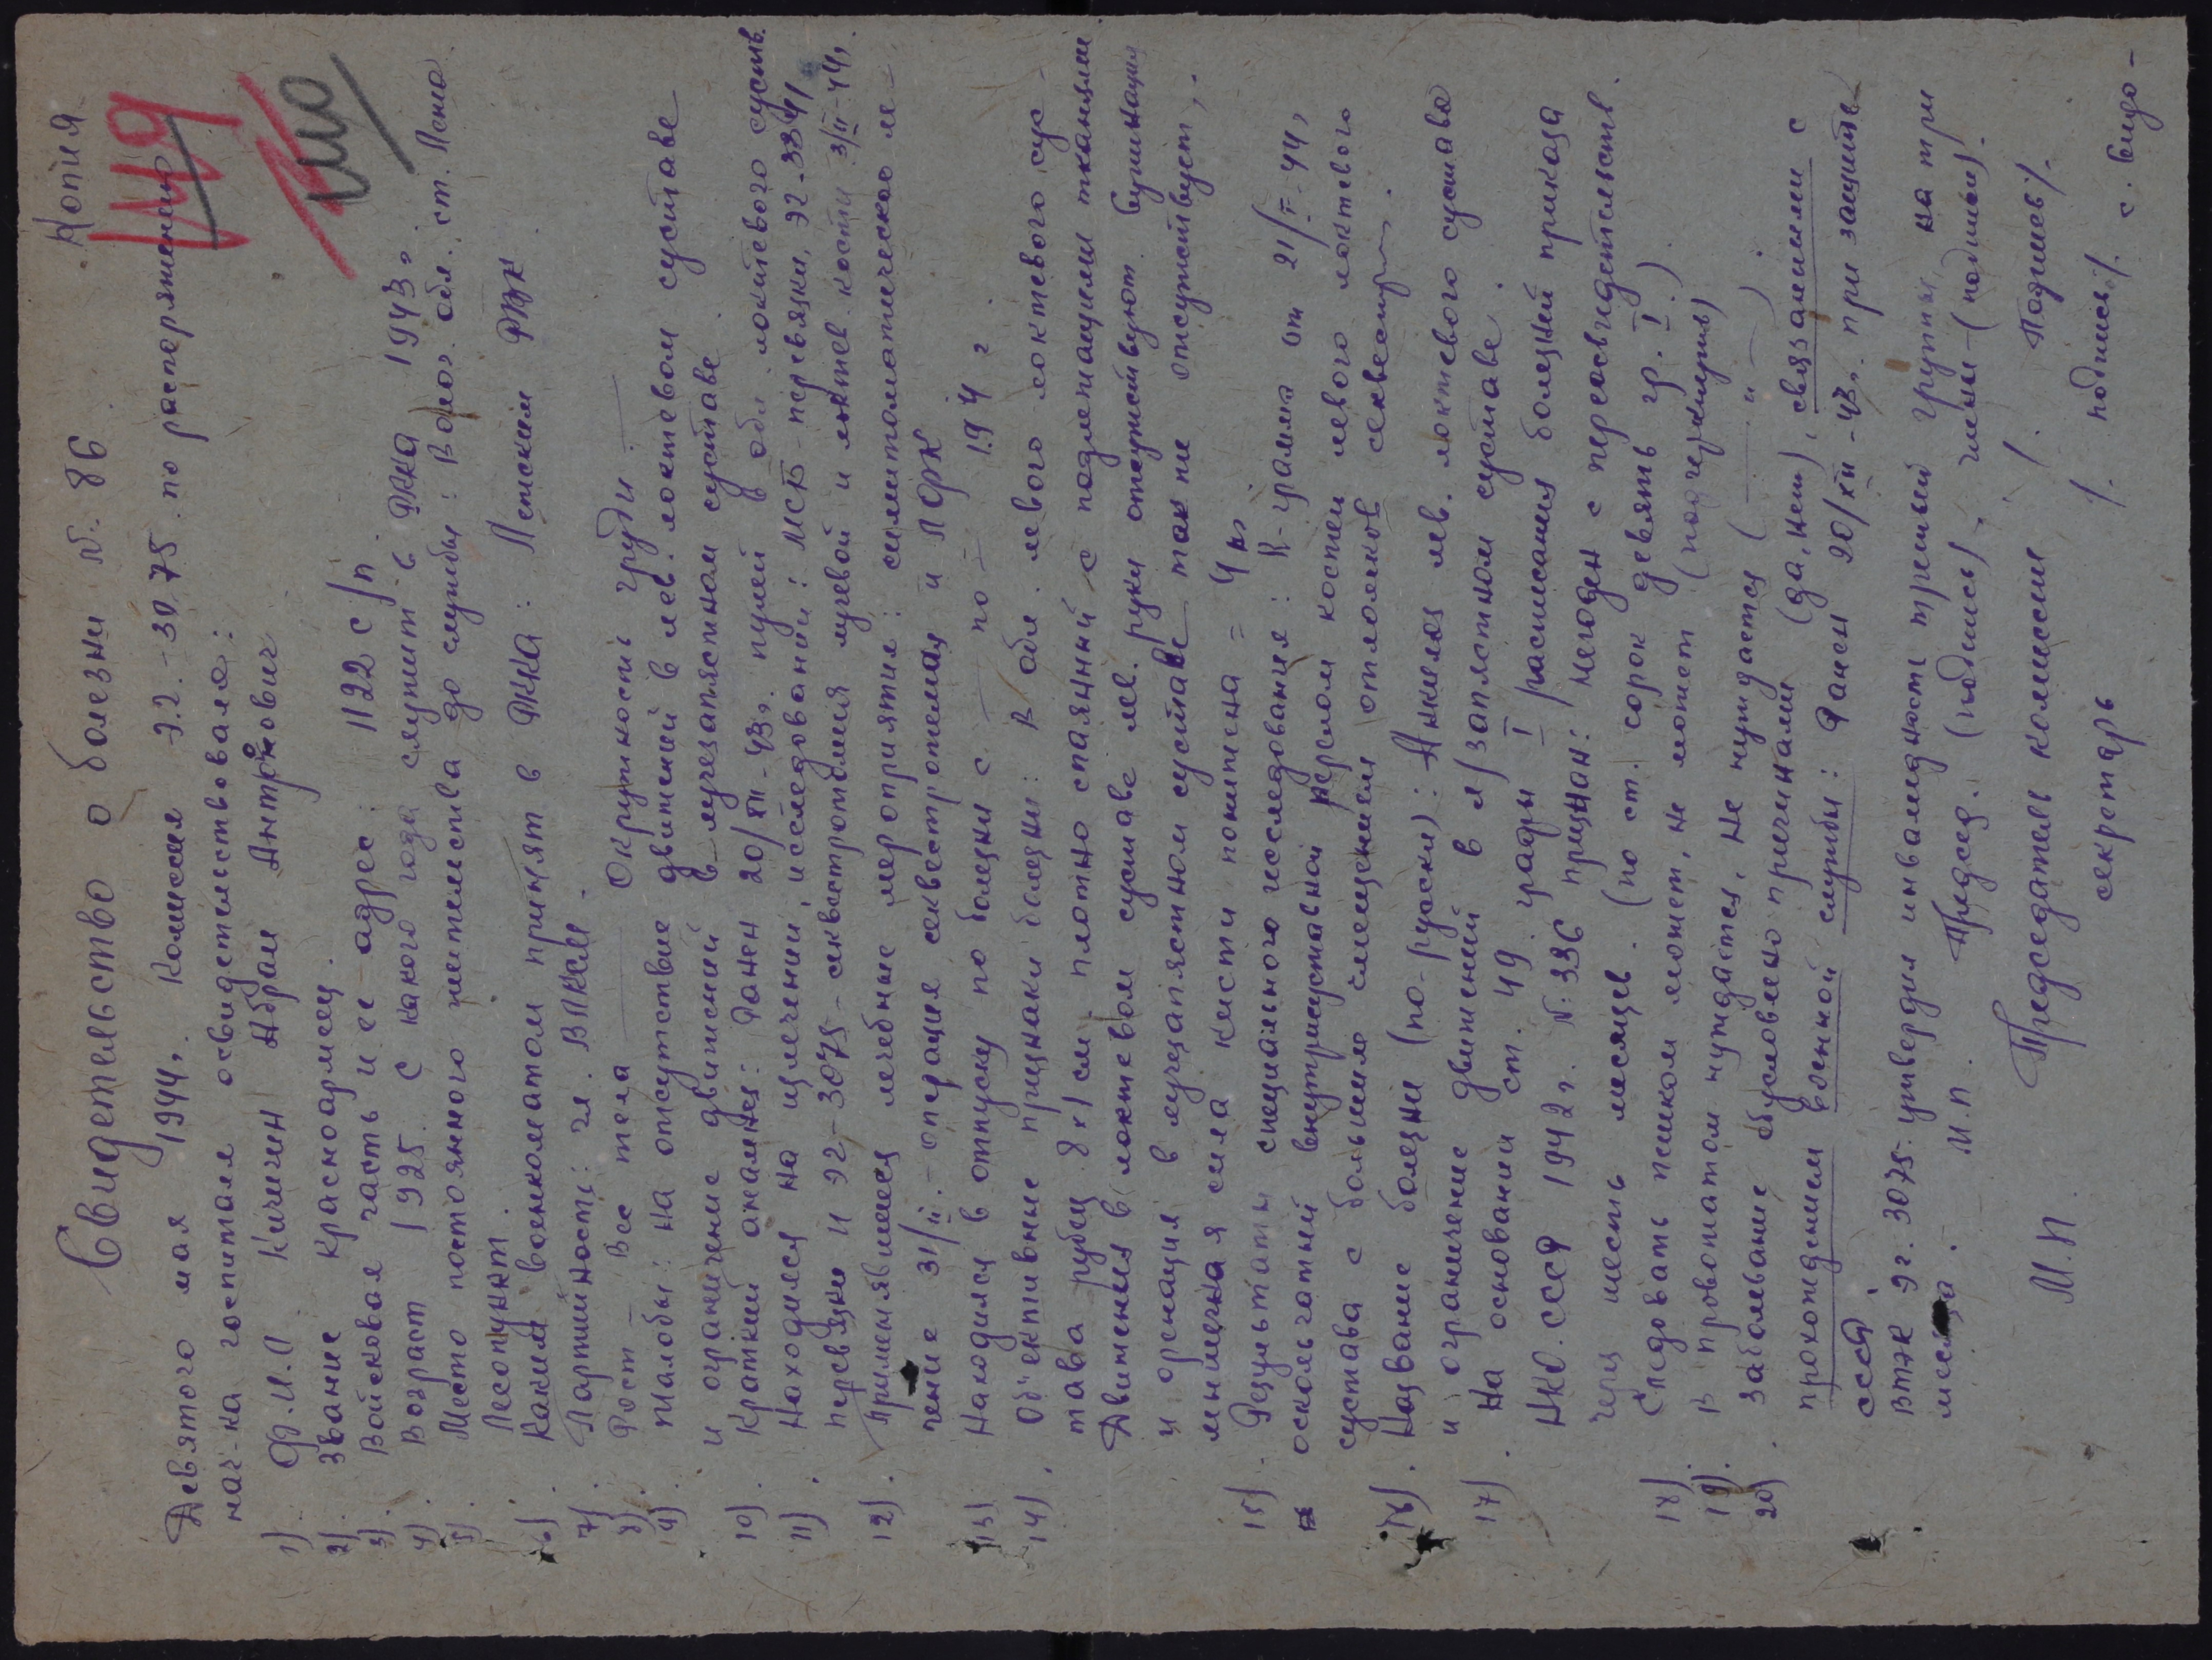 Копия
Свидетельство о болезни №. 86
Девятого мая 1944г. Комиссия Э.Г.-3075. по распоряжению
нач-ка госпиталя освидетельствовала:
1) Ф.И.О Кичигин Абрам Антонович
2). Звание красноармеец.
3). Войсковая часть и ее адрес: 1122 с/п
4) Возраст 1925. С какого года служит в РККА 1943г.
5) Место постоянного жительства до службы: Волог. обл. ст.
Лесопункт.
6). Каким военкоматом призван в РККА: РВК
7). Партийность: чл. ВЛКСМ.
8). Рост — Вес тела — Окружность груди —
9). Жалобы: на отсутствие движений в лев. локтевом суставе
и ограничение движений в лучезапястном суставе
10). Краткий анамнез: Ранен 20/XII-43г. пулей в обл. локтевого суст.
11). Находился на излечении, исследовании: МСБ-перевязки, ЭГ-3341
перевязки и ЭГ-3075-секвестротомия лучевой и локтев. кости 3/II-44г.
12). Применявшиеся лечебные мероприятия: симптоматическое ле-
чение 31/II.- операция секвестротомия и ЛФК
13) Находился в отпуску по болезни с — по — 194 г.
14). Объективные признаки болезни: В обл. левого локтевого сус-
тава рубец 8х1 см. плотно спаянный с подлежащими тканями
Движения в локтевом суставе лев. руки отсутствуют.
и в лучезапястном суставе также отсутствует,.
мышечная сила кисти понижена = 4 кг
15). Результаты специального исследования: R-грамма от 21/I-44г
оскольчатый внутрисуставной перелом костей левого локтевого
сустава с большим смещением отломков
16). Название болезни (по-русски): Анкилоз лев. локтевого сустава
и ограничение движений в л/запястном суставе.
17). На основании ст. 49 графы I расписания болезней приказа
НКО.СССР 1942г. №:336 признан: Негоден с переосвидетельств.
через шесть месяцев. (по ст. сорок девять гр. I.)
18). Следовать пешком может, не может (подчеркнуть)
19). В провожатом нуждается, не нуждается (— " —).
20). Заболевание обусловлено причинами (да, нет), связанными с
прохождением военной службы: Ранен 20/XII-43г. при защите
СССР.
ВТЭК Э.Г. 3075. утвердил инвалидность третьей группы на три
месяца. М.П. Председ. (подпись), члены-(подписи).
М.П. Председатель комиссии /. Подпись/.
секретарь /. подпись/. с.